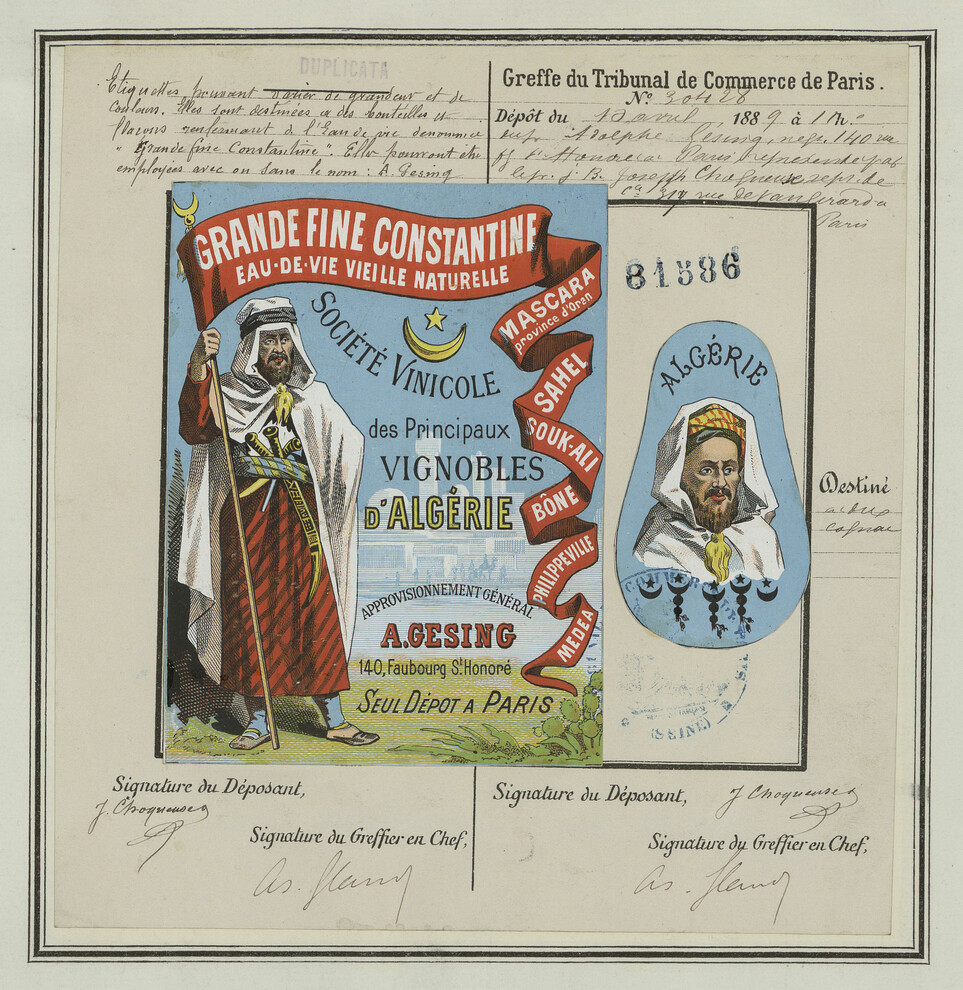 DUPLICATA
Etiquettes pouvant varier de grandeur et de
couleurs. Elles sont destinées à des bouteilles et
flacons renfermant de l'Eau de vie dénommée
"Grande fine Constantine". Elles pourront être
employées avec ou sans le nom : A. Gesing
Greffe du Tribunal de Commerce de Paris.
No 30428
Dépôt du 10 avril 1889 à 1 h.
Adolphe Gesing, négt, 140 rue
fg St Honoré à Paris représenté par
le sr. J. B. Joseph Choqueuse
317 rue de Vaugirard à
Paris
GRANDE FINE CONSTANTINE
EAU-DE-VIE VIEILLE NATURELLE
SOCIÉTÉ VINICOLE
des Principaux
VIGNOBLES
D'ALGÉRIE
APPROVISIONNEMENT GÉNÉRAL
A.GESING
140, Faubourg St. Honoré
SEUL DÉPOT A PARIS
MASCARA
province d'Oran
SAHEL
SOUK-ALI
BÔNE
PHILIPPEVILLE
MEDEA
81586
ALGÉRIE
Destiné
cognac
(SEINE)
Signature du Déposant,
J. Choqueuse
Signature du Greffier en Chef,
Signature du Déposant,
J Choqueuse
Signature du Greffier en Chef,